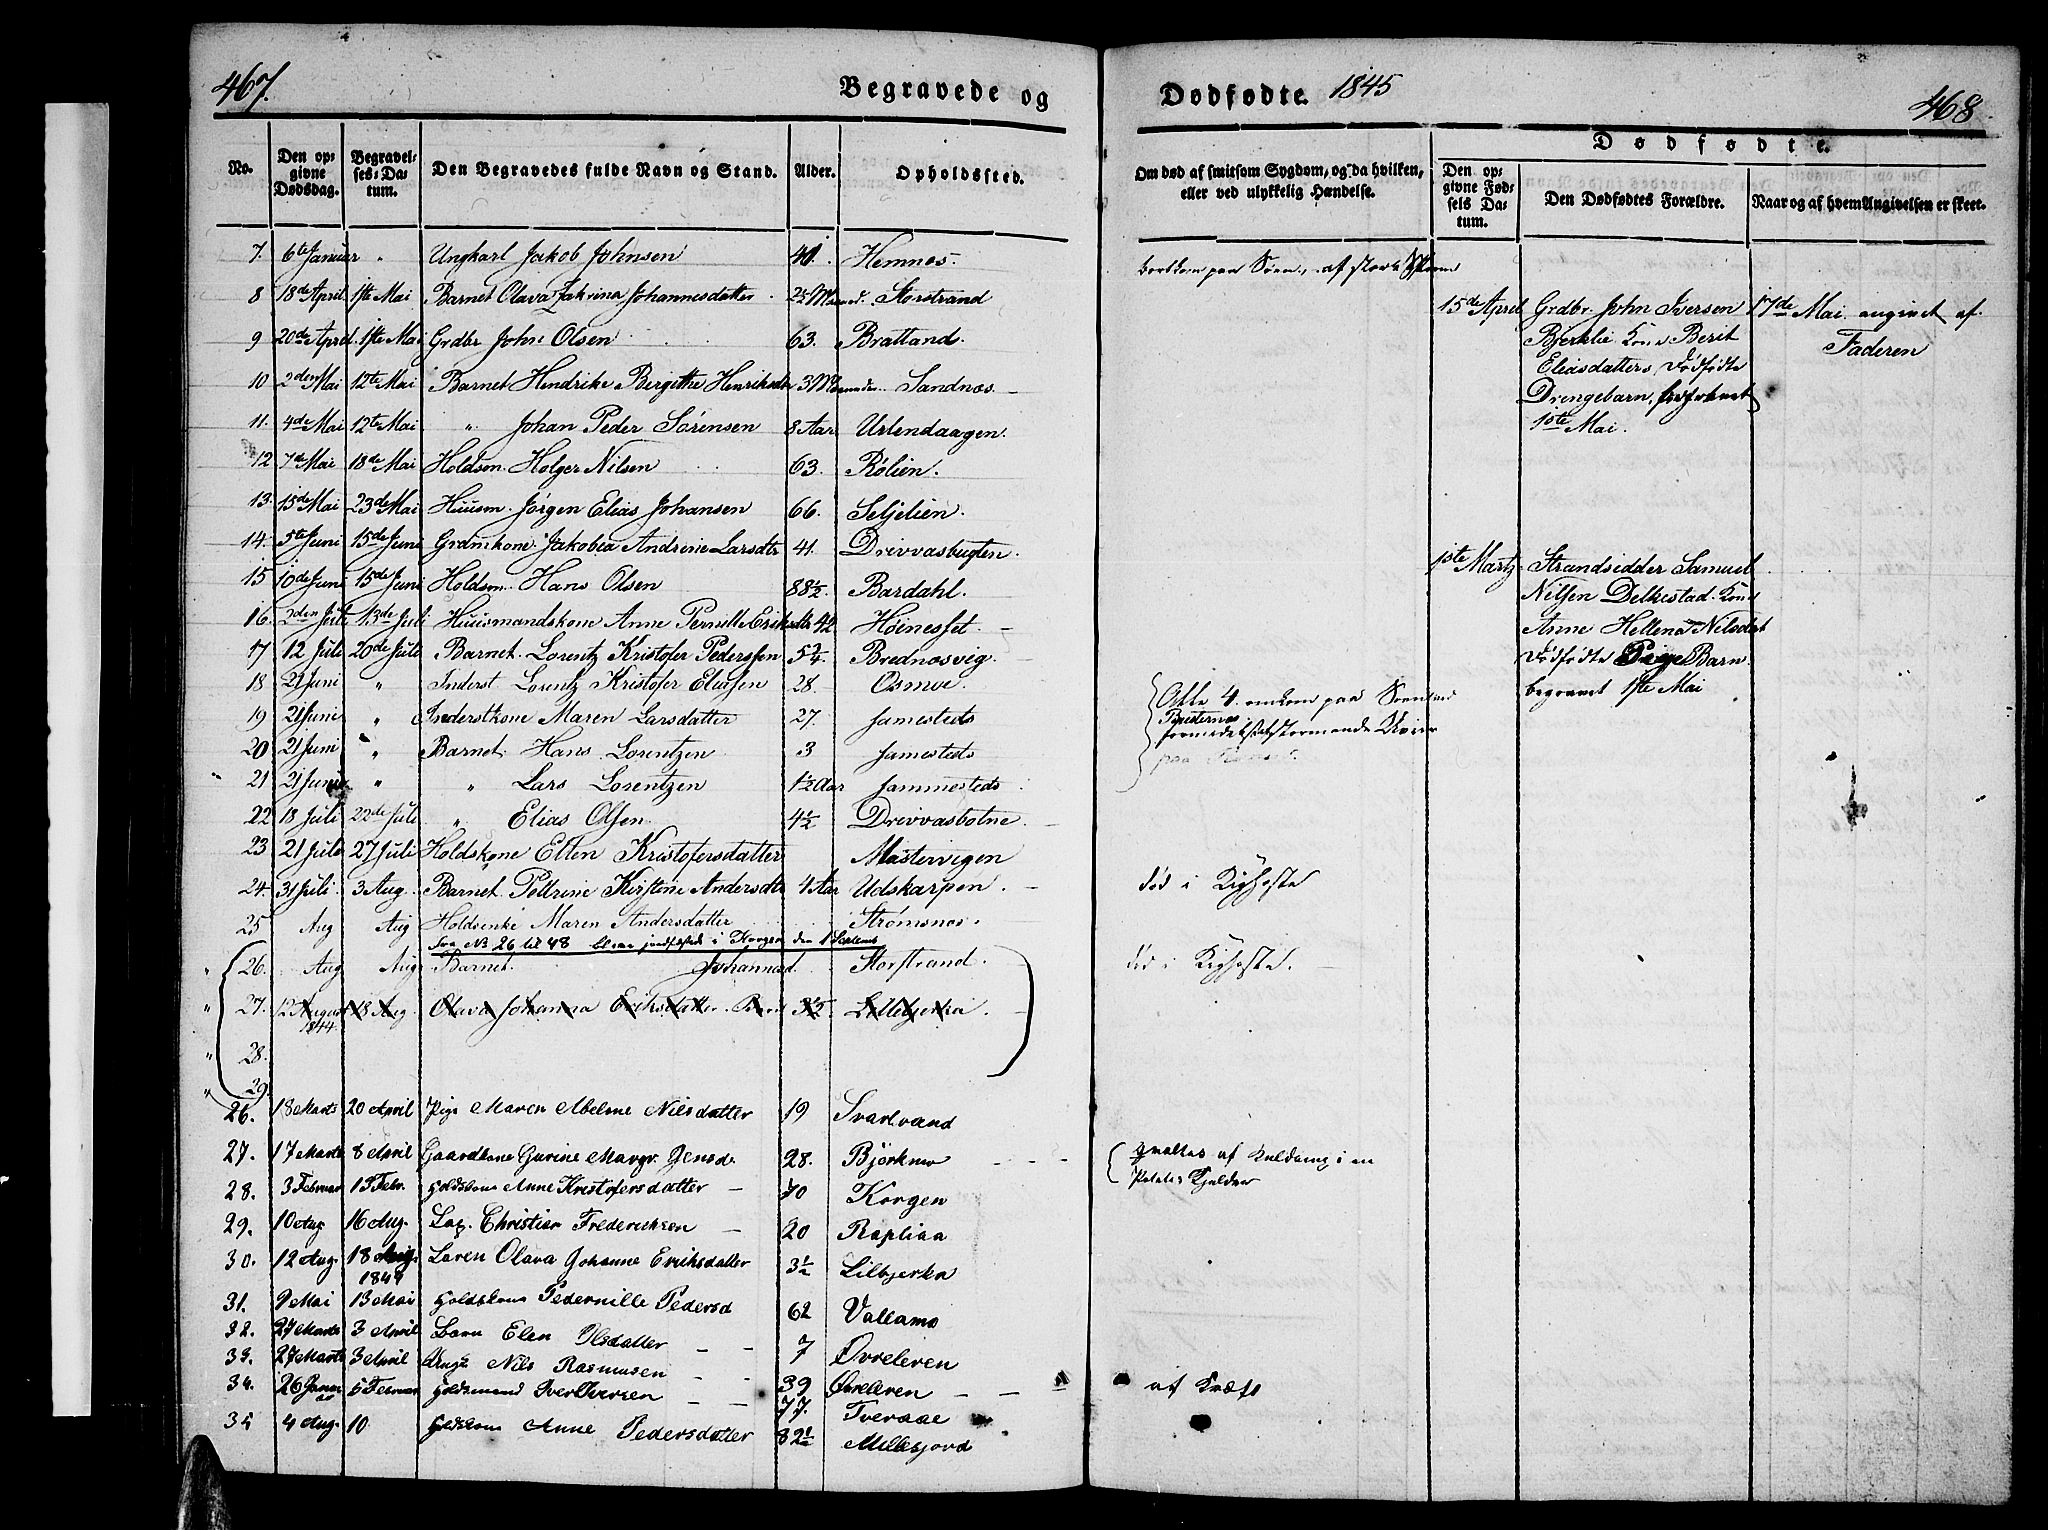 467.
Begravede og
No.
Den op-
givne
Dødsdag.
Begravel-
ses-Da-
tum.
Den Begravedes fulde Navn og Stand.
Alder.
Opholdssted.
7. 6te Januar " Ungkarl Jakob Johnsen 41. Hemnæs.
8 18de April 1ste Mai Barnet Olava Zakrina Johannesdatter 2½ Storstrand
9 20de April 1ste Mai Grdbr John Olsen 63. Brattland.
10 2den Mai 12te Mai Barnet Hendrike Bergitthe 3 Sandnæs
11. 4de Mai 12te Mai " Johan Peder Sørensen 8 Aar Urlendaagen.
12 7de Mai 18de Mai Holdsm. Holger Nilsen 63. Rølien.
13. 15de Mai 23de Mai Huusm. Jørgen Elias Johansen 66. Seljelien.
14. 5te Juni 15de Juni Grdmkone Jakobea Andrine Larsdtr 41. Drevvasbugten.
15 10de Juni 15de Juni Holdsm. Hans Olsen 88½ Bardahl.
16. 2den Juli 13de Juli Huusmandskone Anne Pernille Eriksdtr 42 Høinesset.
17 12 Juli 20de Juli Barnet. Lorentz Kristofer Pederssen Brednæsvig.
18 21 Juni " Inderst Lorentz Kristofer Eliassen 28. Osmoe.
19 21 Juni " Inderstkone Maren Larsdatter 27. Samesteds
20 21 Juni " Barnet. Hans Lorentzen 3 Samesteds
21 21 Juni " " Lars Lorentzen 1½ Aar Sammesteds
22 18 Juli 22de Juli " Elias Olsen 4½ Drevvasbotne.
23 21 Juli 27 Juli Holdskone Ellen Kristofersdatter Mastervigen
24. 31 Juli 3 Aug. Barnet. Pettrine Kirstine Andersdtr 4 Aar Udskarpen.
25 Aug Aug Holdsenke Maren Andersdatter Strømsnæs.
Fra No 26 til 48 i Korgen den
26. Aug Aug Barnet. Johannad. Storstrand.
27. 12 August 1844. 18 Aug. Olava Johanna Eriksdatter. 3½ Lillebjerka.
28.
29
26. 18 Marts 20 April Pige Maren Abeline Nilsdatter 19 Svartvand
27. 17 Marts 8 April Gaardkone Gurine Margr. Jensd. 28. Bjørkmo
28. 3 Februar 13 Febr. Holdskone Anne Kristofersdatter 70 Korgen
29. 10 Aug 16 Aug. Christian Frederiksen 20 Rapliaa
30. 12 Aug. 18 Aug. 1844 Olava Johanne Eriksdatter 3½ Lilbjerka
31. 9 Mai 13 Mai Holdskone Pedernille Pedersd 62 Vallamo
32. 27 Marts 3 April Barn Elen Olsdatter 7 Øvreleren
33. 27 Marts 3 April Nils Rasmusen 39 Øvreleren
34. 26 Januar 5 Februar Holdsmand Iver Iversen 77. Tveraae
35 4 Aug. 10 Holdskone Anne Pedersdatter 82½ Millesjord
Dødfødte. 1845
468.
Om død af smitsom Sygdom, og da hvilken,
eller ved ulykkelig Hændelse.
Dødfødte.
Den op-
givne Fød-
sels Da-
tum.
Den Dødfødtes Forældre.
Naar og af hvem Angivelsen er skeet.
bortkom paa Søen, af stærk Storm
Alle 4 omkom paa Søen ved
formedelst
død i Kighoste
død i Kighoste.
Qvaltes af Kuldamp i en
Potetes Kjelder
af Kræft
15de April Grdbr. John Iversen 17de Mai angivet af
Bjerklie Kone Berit Faderen
Eliasdatters dødfødte
Drengebarn,
1ste Mai.
1ste Martz Strandsidder Samuel
Nilsen Delkestad. Kone
Anne Hellena Nilsdtrs
dødfødte Pige Barn.
begravet 1ste Mai